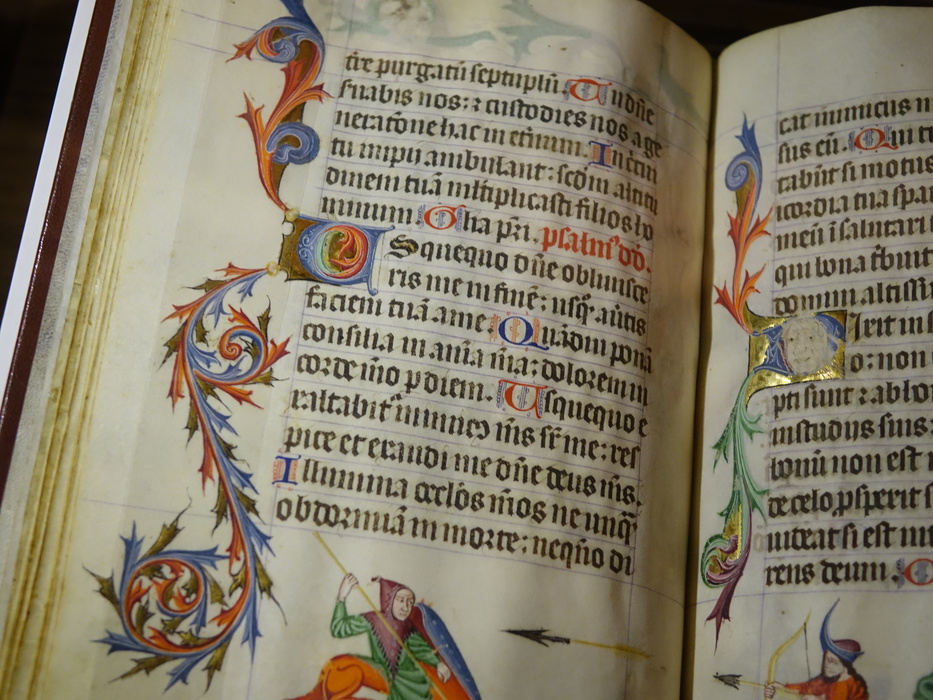 tre purgatū septuplū. Tu dñe
suabis nos: ⁊ custodies nos a ge
neratōne hac in etnum. In circu
tu impij ambulant: scdm altitu
dinem tuā mltiplicasti filios ho
minum. Gha pri. psalm9 dd.
Usquequo dñe obliuisce
ris me in finē: usq; auertis
faciem tuā a me. Quādiu ponā
consilia in aīa mā: dolorem in
corde mō p diem. Usquequo e
xaltabit inimic9 ms sr me: res
pice et exaudi me dñe deus ms.
Illumina oclōs mōs ne unq̄
obdormiā in morte: neqño di
cat inimicus m
sus eū. Qui t
tabūt si motus
icordia tua spa
meū ī salutari
qui bona tbuit
domini altissi
Dixit ins
o: non
pti sunt ⁊ abho
in studijs suis:
bonū non est
de celo pspexit s
uideat si est int
rens deum.